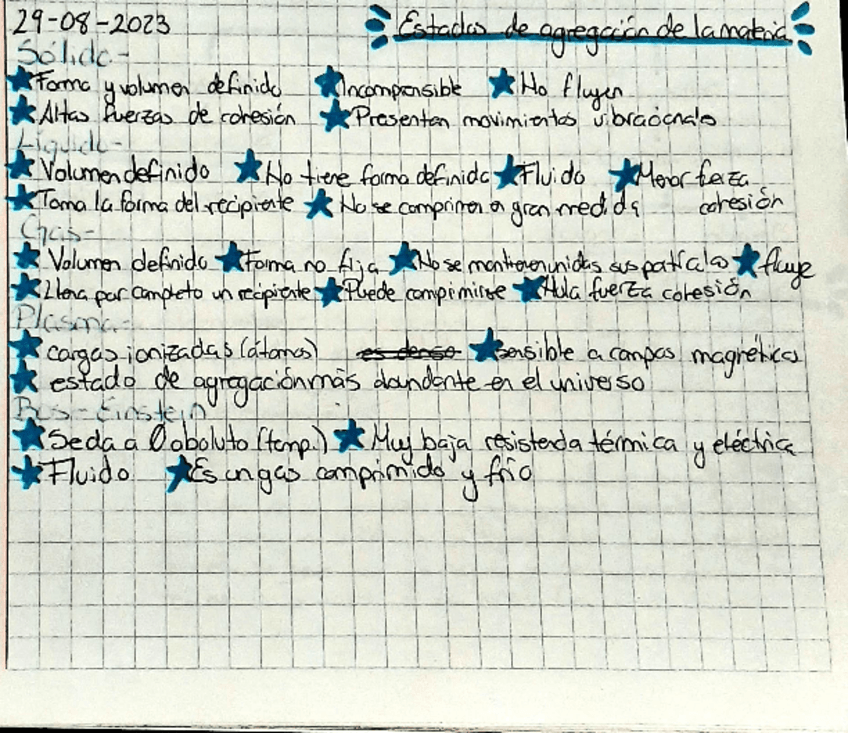 29-08-2023 Estados de agregación de la materia
Sólido-
★Forma y volumen definido ★Incomprensible ★No fluyen
★Altas fuerzas de cohesión ★Presentan movimientos vibracionales
Líquido-
★Volumen definido ★No tiene forma definida ★Fluido ★Menor fuerza
★Toma la forma del recipiente ★No se comprimen en gran medida cohesión
Gas-
★Volumen definido ★Forma no fija ★No se mantienen unidas sus partículas ★fluye
★Llena por completo un recipiente ★Puede comprimirse ★Nula fuerza cohesión
Plasma-
★cargas ionizadas (átomos) es denso ★sensible a campos magnéticos
★estado de agregación más abundante en el universo
Bos-Einstein
★Se da a 0 absoluto (temp.) ★Muy baja resistencia térmica y eléctrica
★Fluido ★Es un gas comprimido y frío